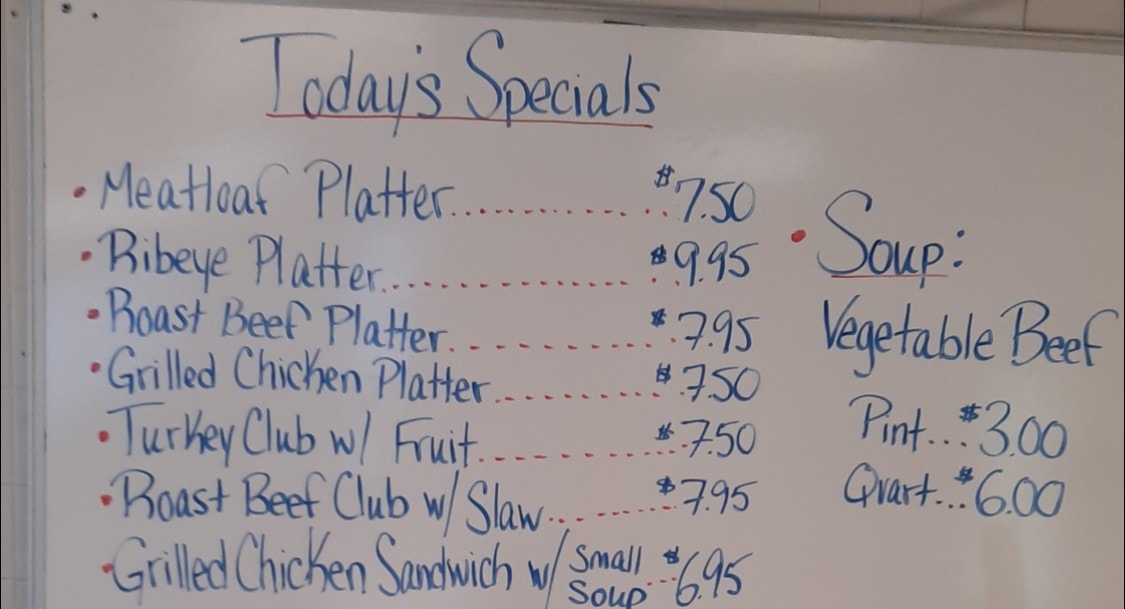 Today's Specials
• Meatloaf Platter.............. $7.50
• Ribeye Platter................... $9.95
• Roast Beef Platter............... $7.95
• Grilled Chicken Platter............... $7.50
• Turkey Club w/ Fruit............... $7.50
• Roast Beef Club w/ Slaw........... $7.95
• Grilled Chicken Sandwich w/ Small Soup... $6.95
• Soup:
Vegetable Beef
Pint...$3.00
Quart...$6.00